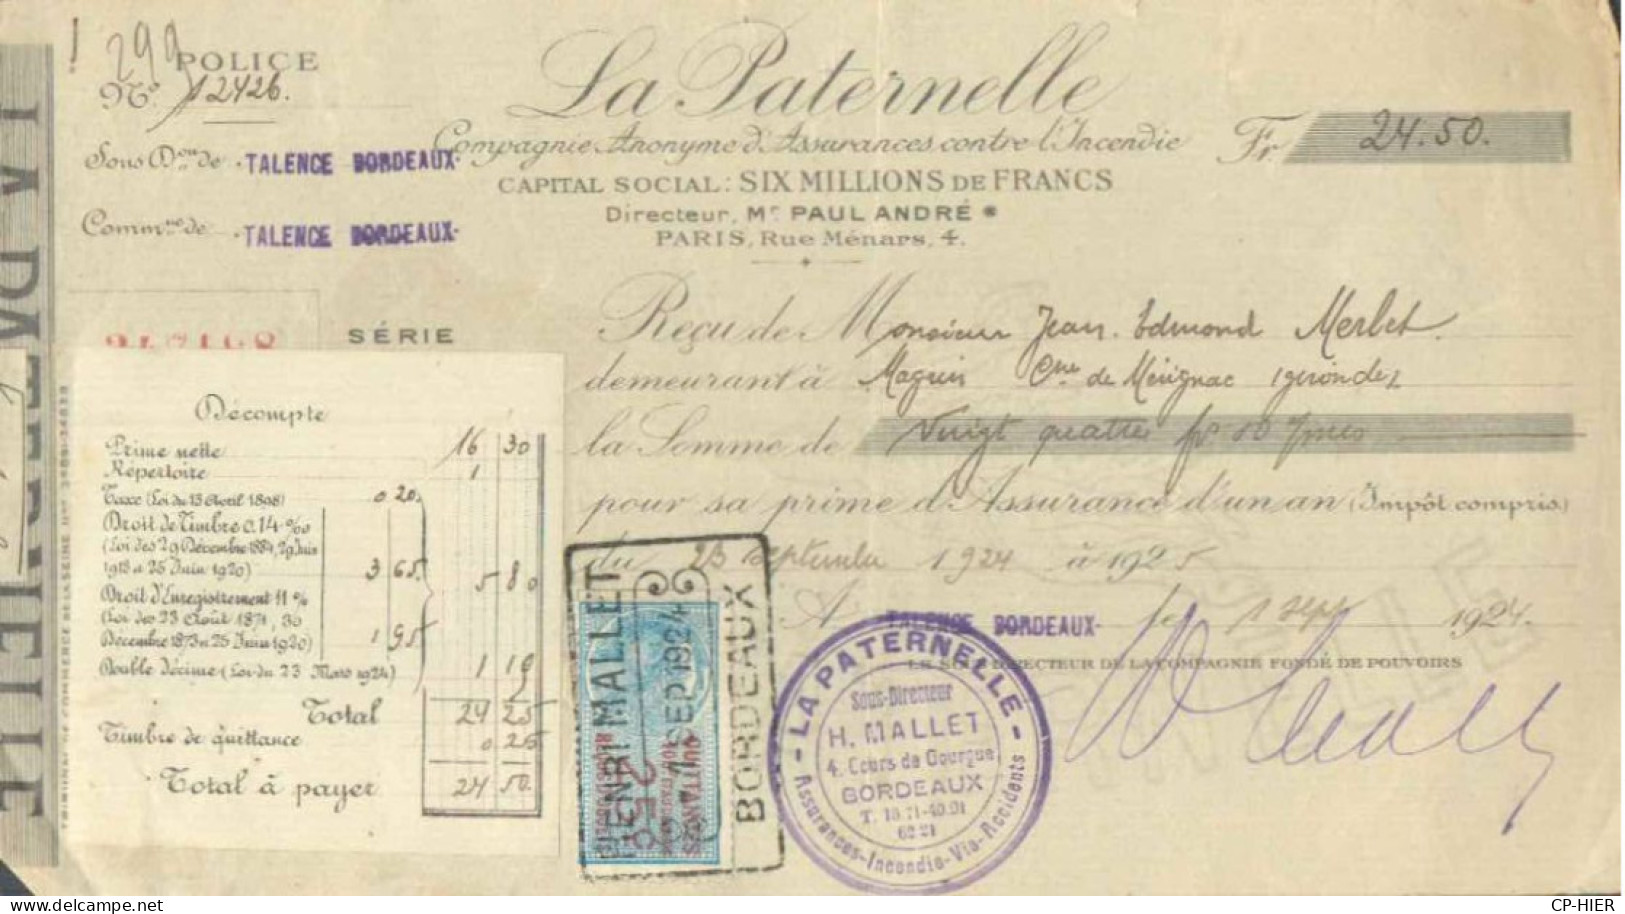 299
POLICE
No. 12426.
Sous Don de TALENCE BORDEAUX
Commne de TALENCE BORDEAUX
La Paternelle
Compagnie Anonyme d'Assurances contre l'Incendie
CAPITAL SOCIAL: SIX MILLIONS DE FRANCS
Directeur, Mr PAUL ANDRÉ
PARIS, Rue Ménars, 4.
Fr. 24.50.
SÉRIE
Reçu de Monsieur Jean Edmond Merlet.
demeurant à Magrin Cne de Mérignac (gironde)
la Somme de Vingt quatre frs
pour sa prime d'Assurance d'un an (Impôt compris)
du 23 septembre 1924 à 1925
A TALENCE BORDEAUX le 1 sept 1924.
LE SOUS DIRECTEUR DE LA COMPAGNIE FONDÉ DE POUVOIRS
Décompte
Prime nette 16 30
Répertoire 1
Taxe (Loi du 13 Avril 1898) 0 20.
Droit de Timbre 0.14 ‰
(Loi des 29 Décembre 1884, 29 Juin
1918 et 25 Juin 1920) 3 65. 5 80
Droit d'Enregistrement 11 %
(Loi des 23 Août 1871, 30
Décembre 1873 et 25 Juin 1920) 1 95
Double décime (Loi du 23 Mars 1924) 1 19
Total 24 25
Timbre de quittance 0.25
Total à payer 24 50.
HENRI MALLET
1 SEP. 1924
BORDEAUX
QUITTANCES
25c
LA PATERNELLE
Sous-Directeur
H. MALLET
4, Cours de Gourgue
BORDEAUX
T. 18.71-40.91
62.21
Assurances-Incendie-Vie-Accidents
LA PATERNELLE
CP-HIER